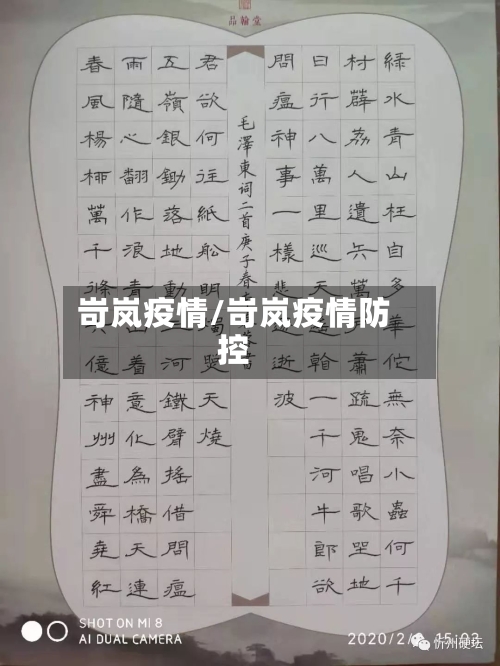 品翰堂
綠水青山枉自多華佗無奈小蟲何千
村薜荔人遺矢萬蕭疏鬼唱歌坐地
日行八萬里巡天一千河牛郎欲
問瘟神事一樣悲逝波
毛澤東词二首庚子春
君欲何往紙船明天燒
五嶺銀鋤落地動河鐵臂搖借問瘟
雨隨心翻作浪青山着意化為橋天連
春風楊柳萬千條六億神州盡舜堯紅
岢岚疫情/岢岚疫情防
控
SHOT ON MI 8
AI DUAL CAMERA
2020/2/ 15:03
忻州硬坛